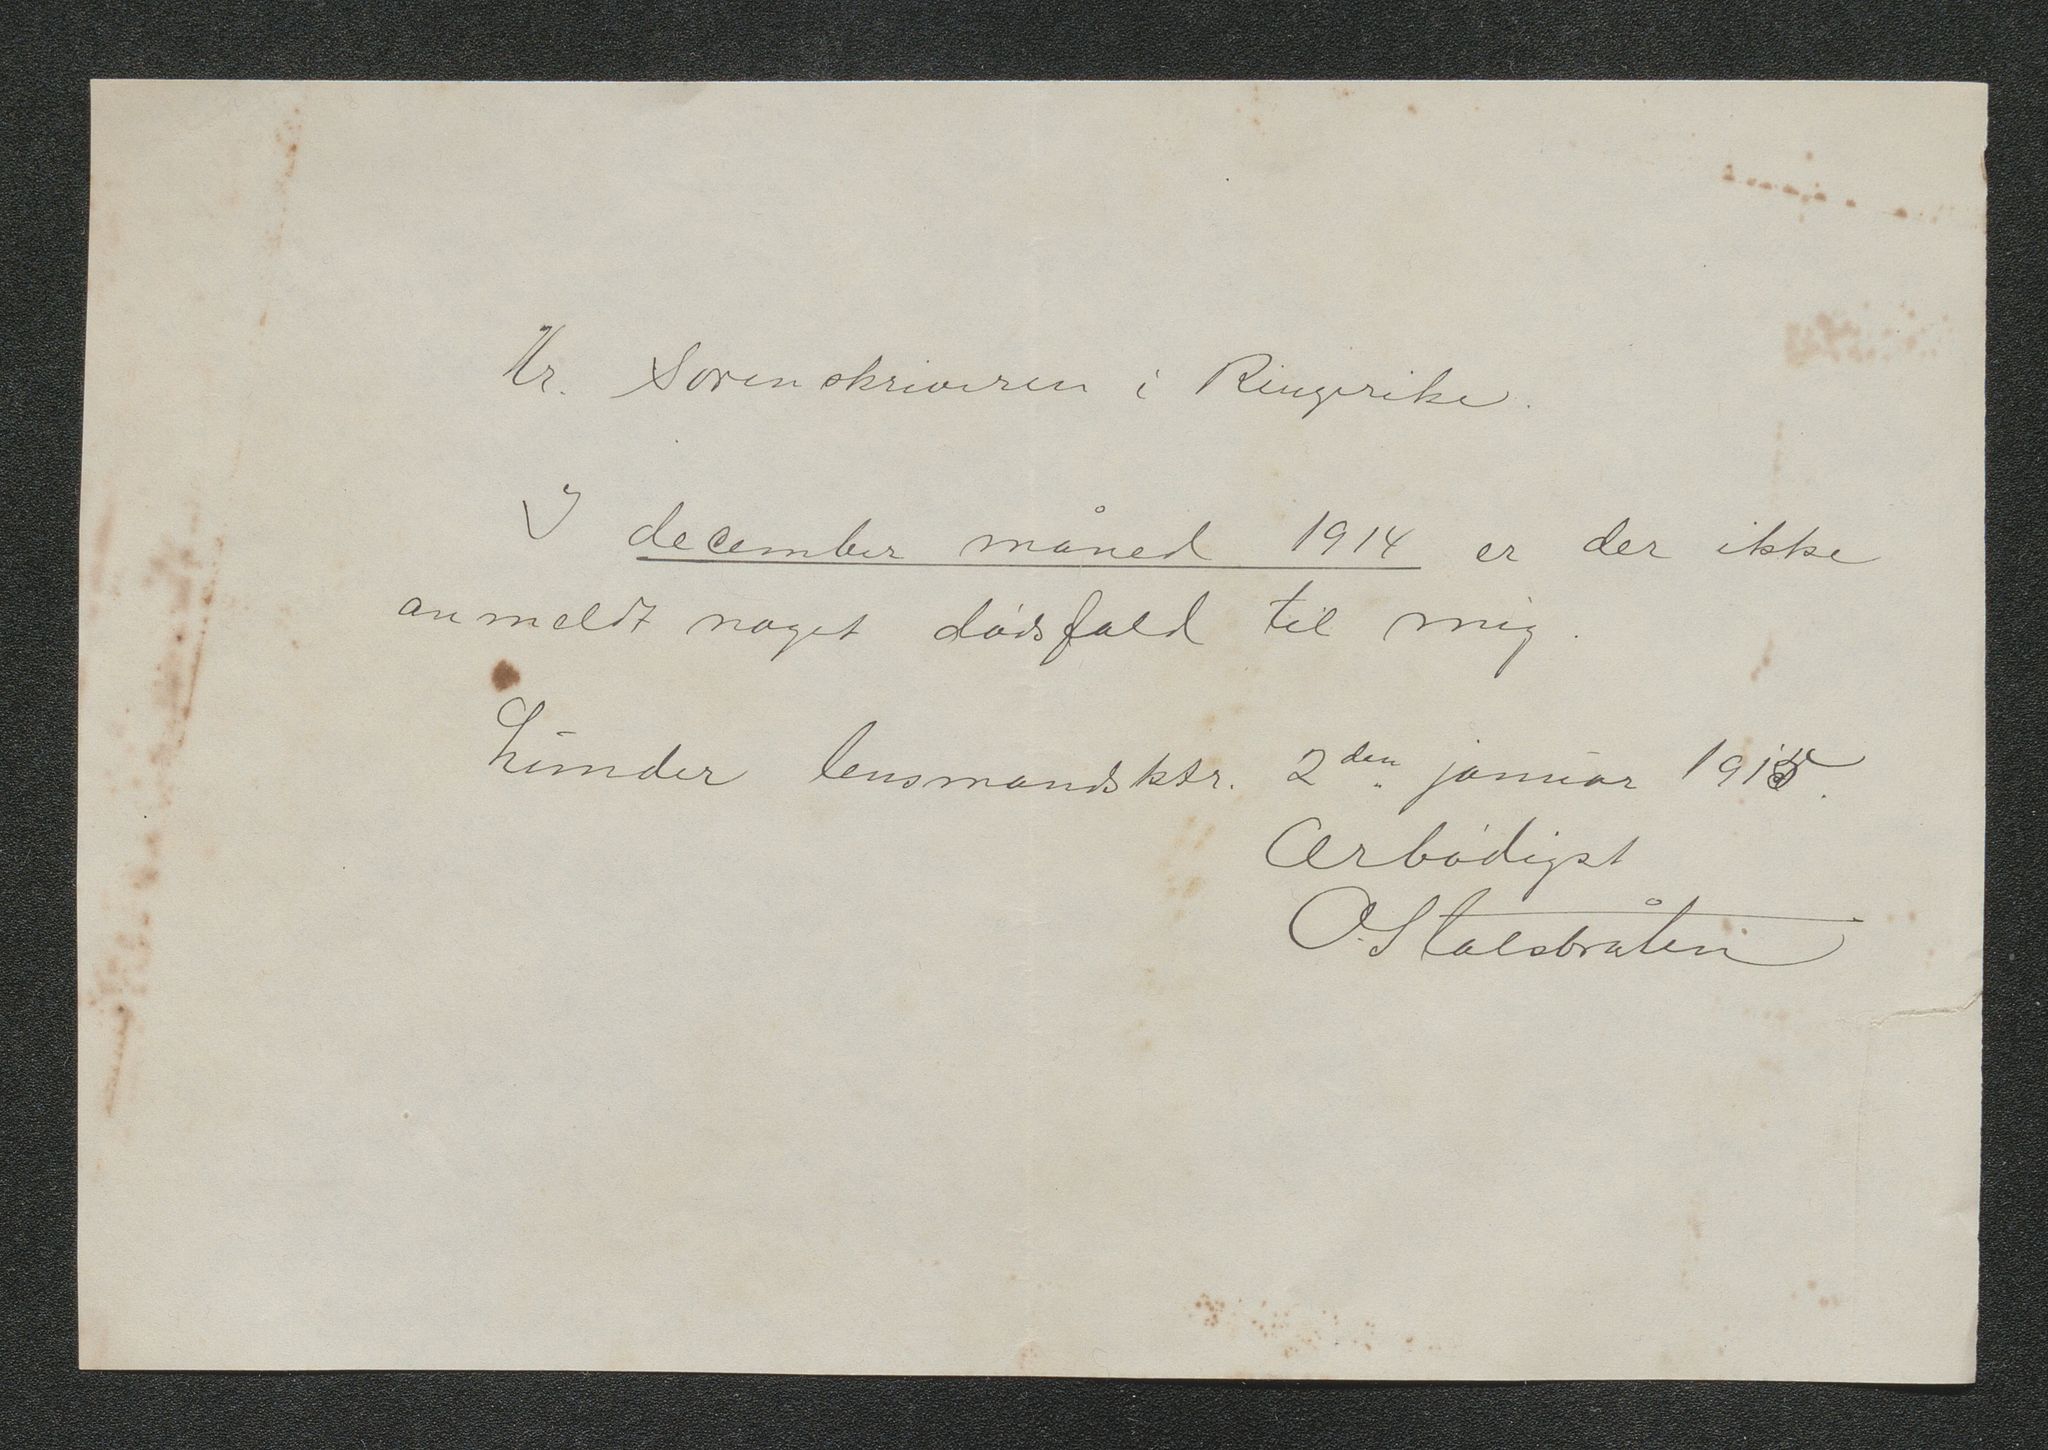 Hr. Sorenskriveren i Ringerike.
I december måned 1914 er der ikke
anmeldt noget dødsfald til mig.
Lunder lensmandsktr. 2den januar 1915.
Ærbødigst
O. Stalsbråten